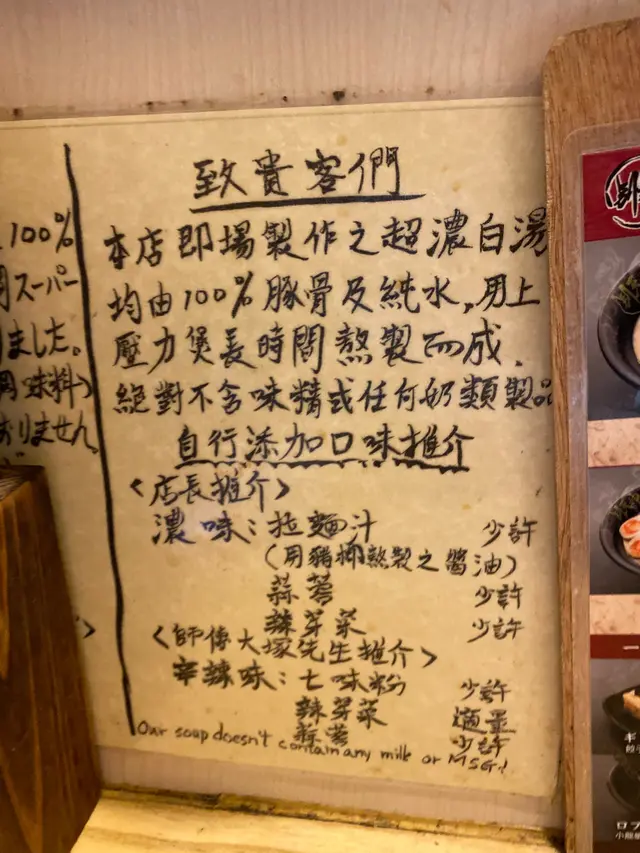 致貴客們
本店即場製作之超濃白湯
均由100%豚骨及純水,用上
壓力煲長時間熬製而成.
絕對不含味精或任何奶類製品
自行添加口味推介
<店長推介>
濃味:拉麵汁 少許
(用豬腩熬製之醬油)
蒜蓉 少許
辣芽菜 少許
<師傅大塚先生推介>
辛辣味:七味粉 少許
辣芽菜 適量
蒜蓉 少許
Our soap doesn't contain any milk or MSG!
100%
スーパー
ました。
味料)
おりません。